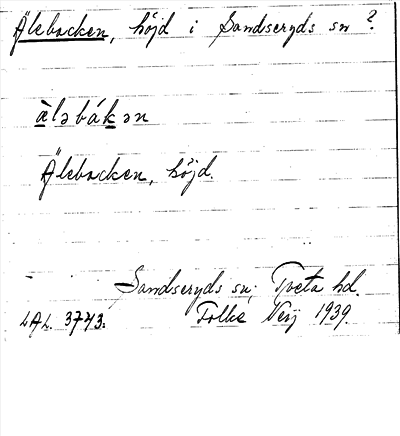 Älebacken, höjd i Sandseryds sn ?
àləbákən
Älebacken, höjd.
Sandseryds sn; Tveta hd.
LAL. 3743. Folke Verj 1939.